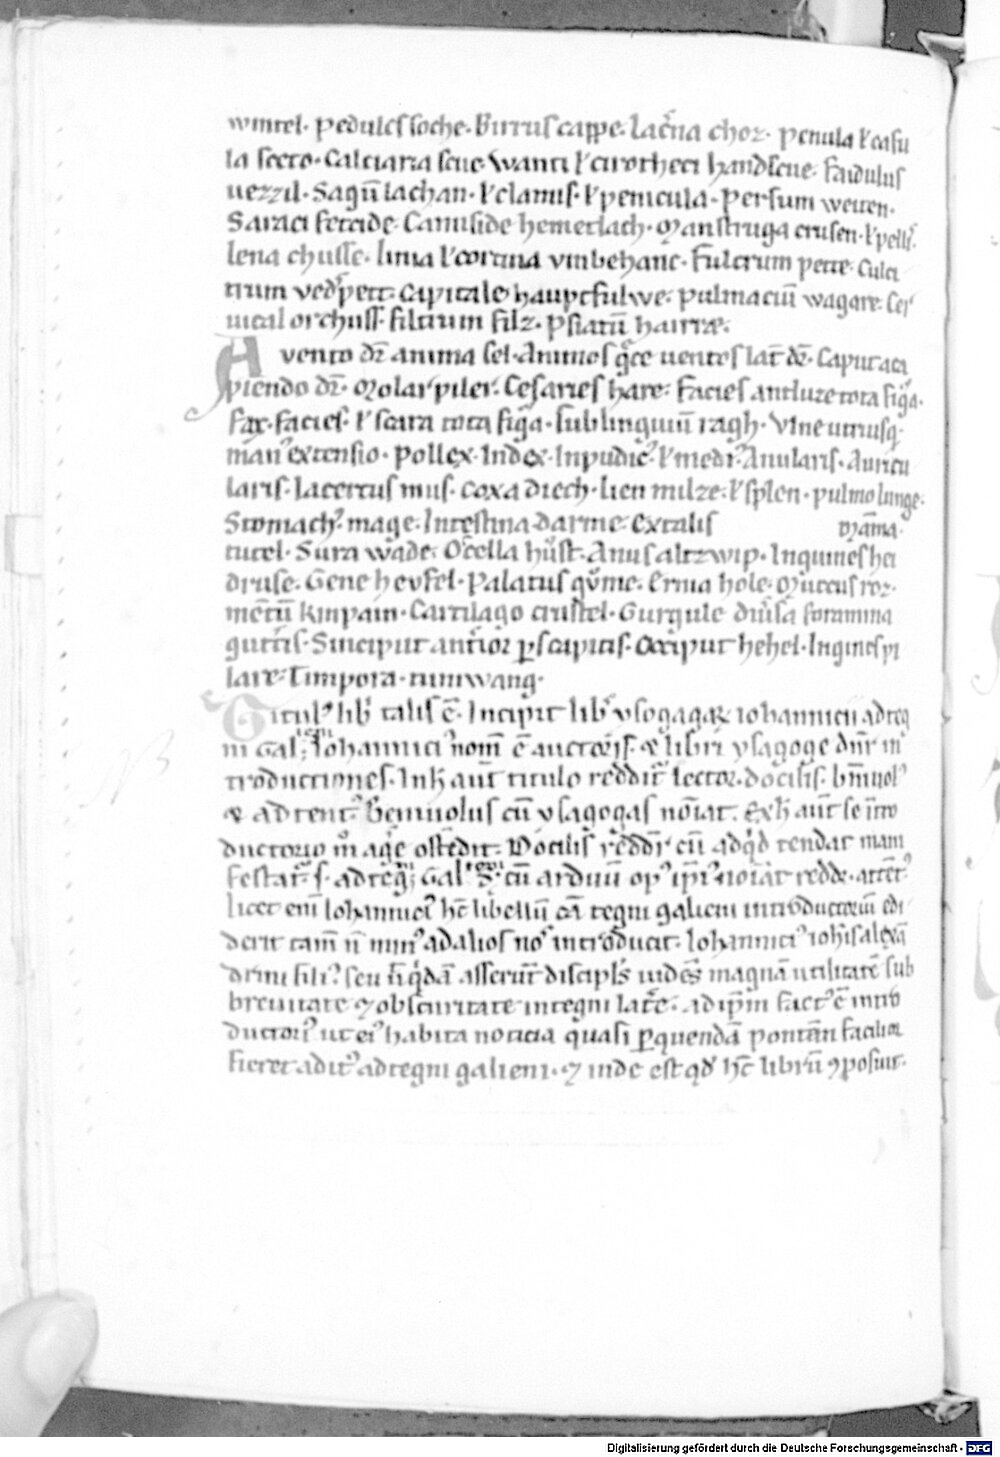 wintel· pedules soche· Birrus cappe· lac̄na choz· penula ł casu
la scero· Calciaria scue· Wanti ł cirotheci handscue· faidulus
uezzil· Sagū lachan· ł clamis· ł penicula· Persum weiten·
Saraci fereide· Camiside hemetlach· Manstruga crusen· ł pelli
lena chusse· linia ł cortina vmbehanc· Fulcrum pette· Culci
trum ved̓pett· Capitale hauptfulwe· pulmaciū wagare· Cer
uical orchuss· filtrum filz· Psiatū hairræ·
A vento dr̄ anima sel· Animos gͣce uentos lat̄ dr̄· Caput a ca
piendo dr̄· Molar piler· Cesaries hare· Facies antluze tota figͣa·
Fax· facies· ł scara tota figͣa· sublinguiū ragh· Vlne utriusq·
man᷒ extensio· Pollex· Index· Inpudic᷒ ł medi᷒ Anularis· Auricu
laris· Lacertus mus· Coxa diech· lien milze· ł splen· pulmo lunge·
Stomach᷒ mage· Intestina darme· Extalis mām̄a·
tutel· Sura wade· Ocella hůst· Anus altzwip· Inguines hei
druse· Gene hevfel· Palatus gůme· Ernia hole· Muccus roz·
mētū kinpain· Cartilago crustel· Gurgule diu̓sa foramina
gutt̓is· Sinciput antior ꝑs capitis· Occiput hehel· Ingines pi
lare· Timpora· tunwang·
Titul᷒ lib̓ talis ē· Incipit lib̓ ysogagaꝝ iohannicii ad teg
ni Gal· Iohannici᷒ nom̄ ē auctoris· & libri ysagoge dn̄r in
troductiones· Inh̓ aut̄ titulo reddit̓ lector docilis· bn̄iuol᷒
& adtent᷒ Beniuolus cū ysagogas noīat· Ex h̓ aut̄ se īntro
ductorio m̊ age ostēdit· Docilis redd̓r cū ad qͥd tendat mani
festat̓· s· ad tegni Gal· S· cū arduū op᷒ ip̄i᷒ noīat redd̓r· attēt᷒
licet eni Iohannici᷒ hc̄ libellū cā tegni galieni introductoriū edi
derit tam̄ n̄ min᷒ ad alios nos introducit· Iohannici᷒ ioh̓is alexā
drini fili᷒ seu ut qͥdā asserūt discipl̓s uidēs magnā utilitatē sub
breuitate ⁊ obscuritate in tegni latē̓e· ad ip̄m fact᷒ ē intro
ductori᷒ ut ei᷒ habita noticia quasi ꝑ quendā pontem facilior
fieret adit᷒ ad tegni galieni· ⁊ inde est qd̓ hc̄ librū ꝯposuit·
Digitalisierung gefördert durch die Deutsche Forschungsgemeinschaft - DFG